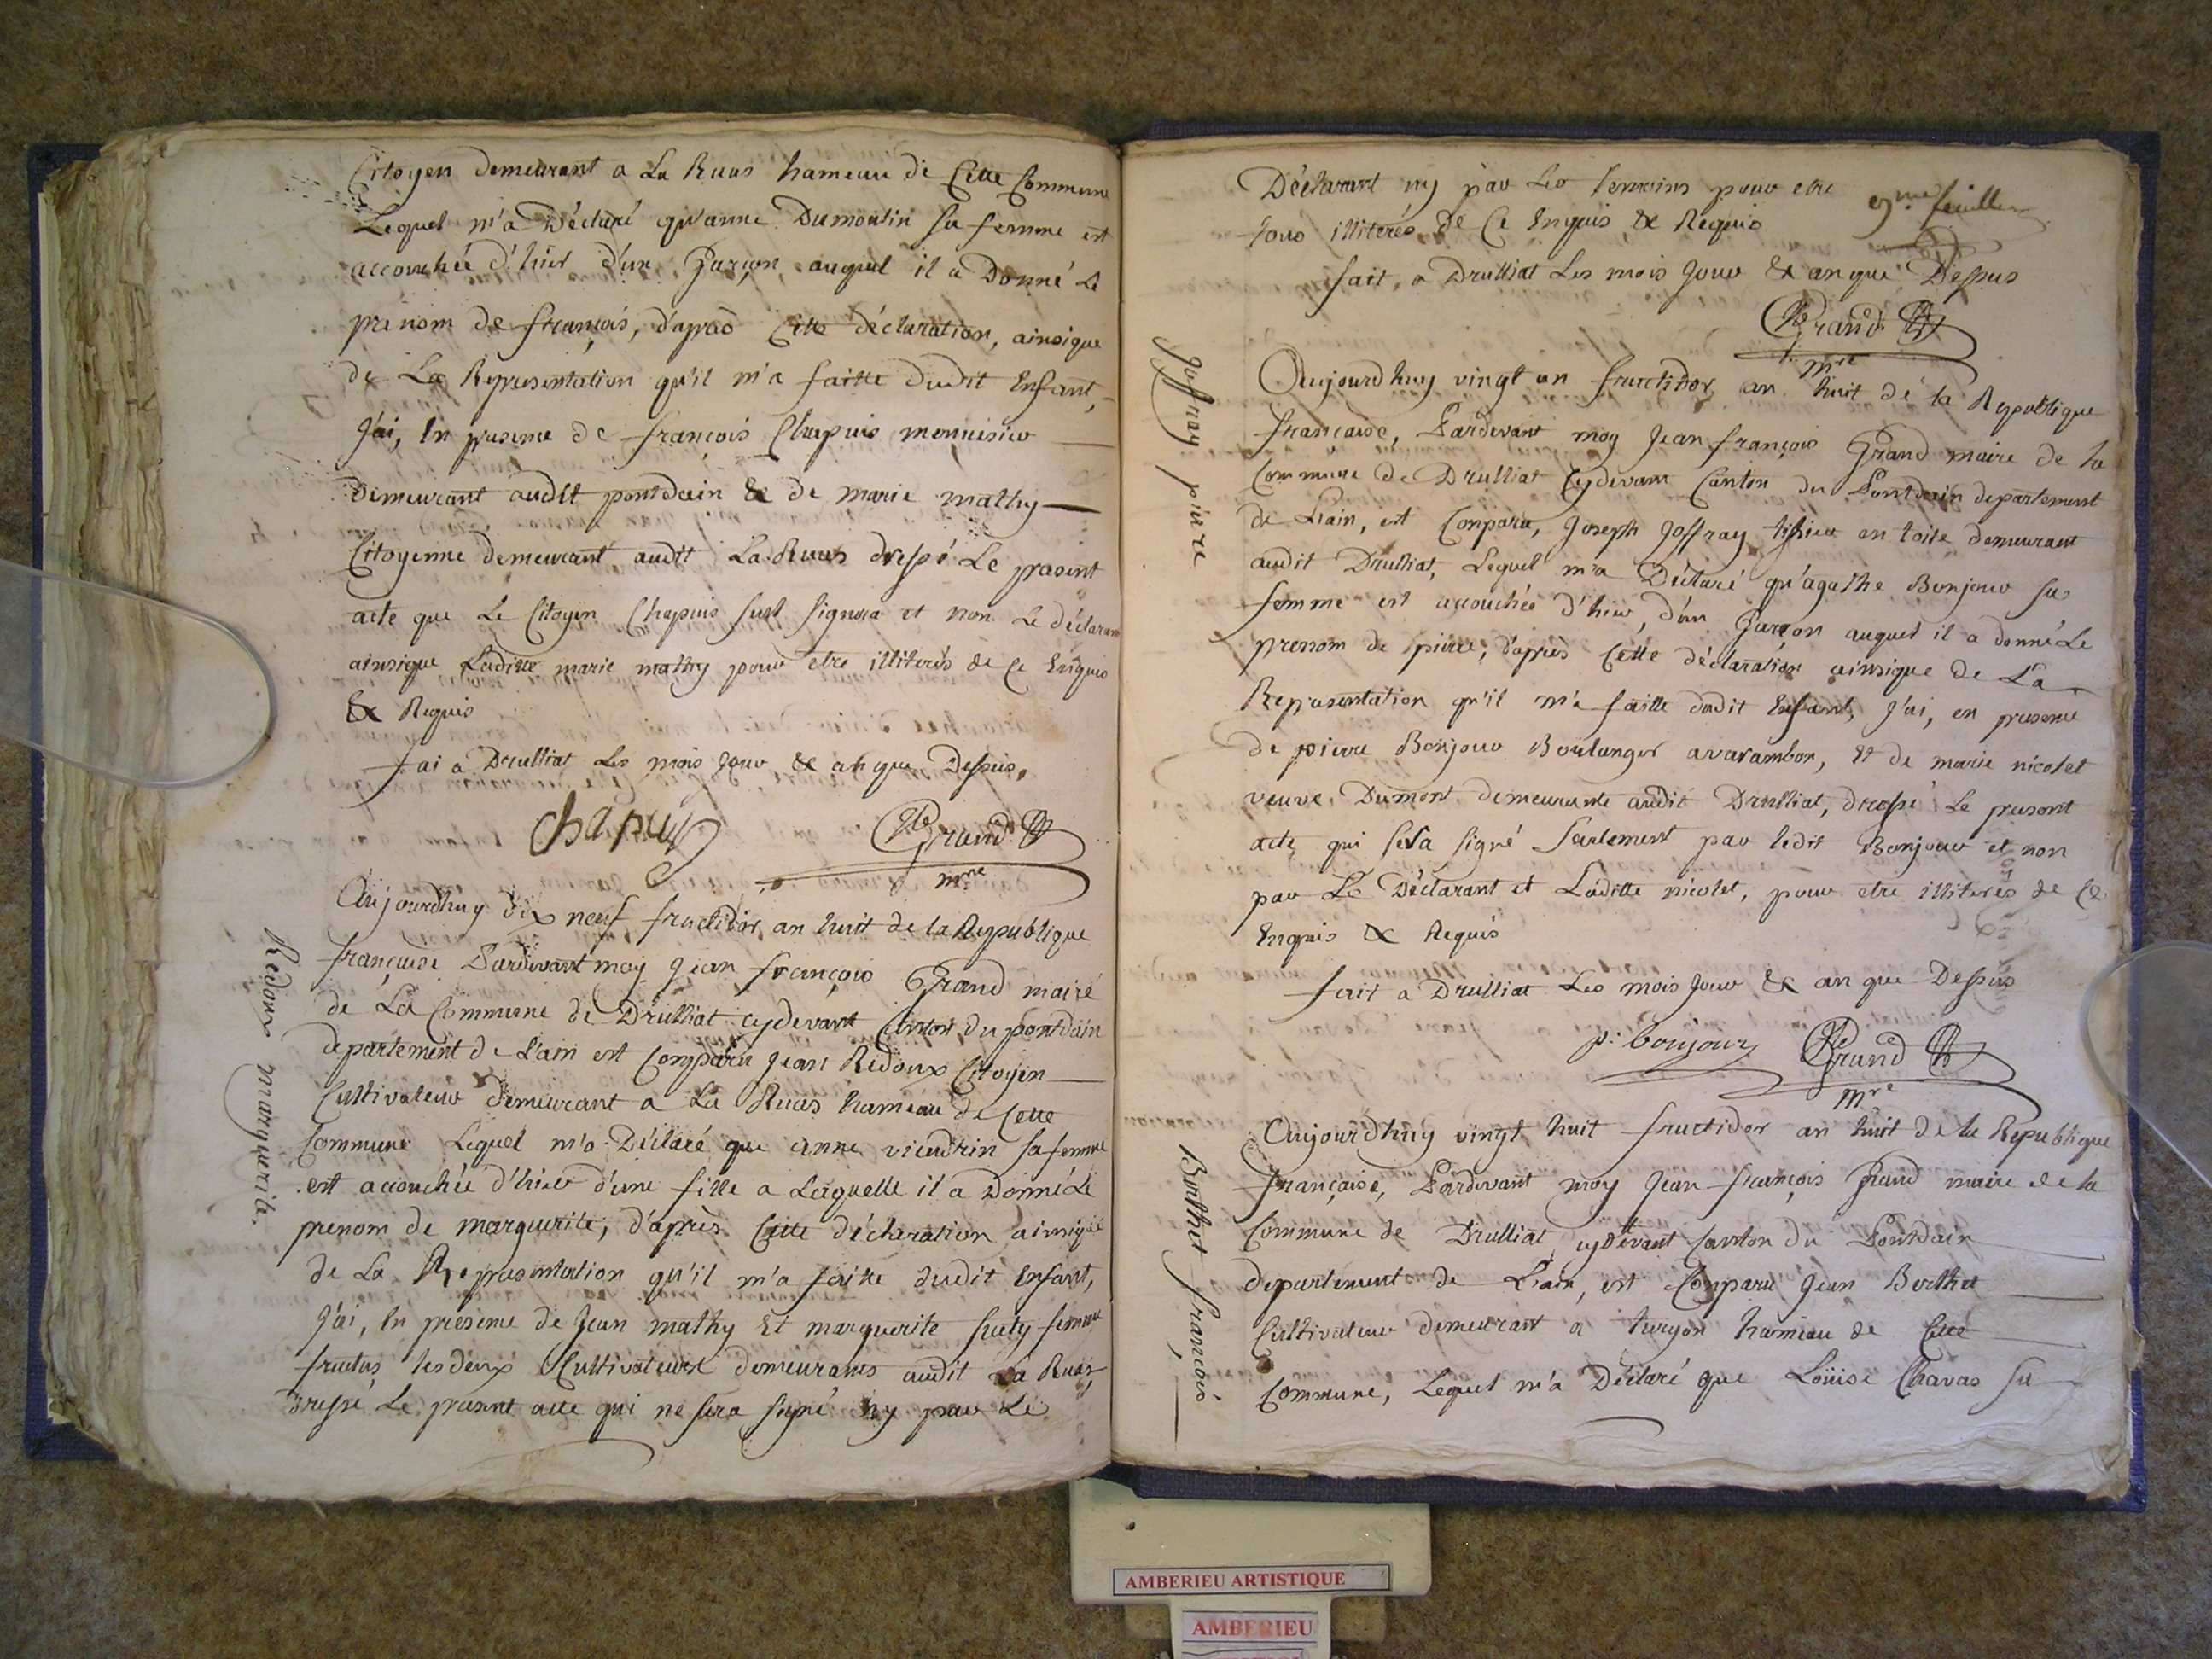 Citoyen demeurant a La Ruas hameau de Cette Commune
Lequel m'a Déclaré qu'anne Dumoulin sa femme est
accouchée d'hier d'un Garçon auquel il a Donné Le
prenom de françois, d'après Cette déclaration, ainsique
de La Representation qu'il m'a faitte dudit Enfant,
J'ai, En presence de françois Chapuis menuisier
demeurant audit pontdain & de marie mathy
Citoyenne demeurant audit La Ruas dressé Le present
acte que Le Citoyen Chapuis seul signera et non Le déclarant
ainsique Laditte marie mathy pour etre illiterés de Ce Enquis
& Requis
fai a Drulliat Les mois Jour & an que Dessus,
Chapuis Grand
mre
Aujourdhuy dix neuf fructidor an huit de la Republique
française Pardevant moy Jean françois Grand maire
de La Commune de Drulliat cydevant Canton du pontdain
departement de L'ain est Comparu Jean Redoux Citoyen
Cultivateur demeurant a La Ruas hameau de Cette
Commune Lequel m'a Déclaré que anne vieudrin sa femme
est accouchée d'hier d'une fille a Laquelle il a Donné Le
prenom de marguerite, d'après Cette déclaration ainsique
de La Representation qu'il m'a faitte dudit Enfant,
J'ai, En présence de Jean mathy Et marguerite femme
les deux Cultivateurs demeurants audit La Ruas
dressé Le present acte qui ne sera signé ny par Le
Redoux marguerite.
Déclarant ny par Les temoins pour etre
tous illiterés de Ce Enquis & Requis
9me feuillet
fait a Drulliat Les mois Jour & an que Dessus
Grand
mre
Joffray pierre
Aujourdhuy vingt un fructidor an huit de la Republique
francaise, Pardevant moy Jean françois Grand maire de la
Commune de Drulliat Cydevant Canton du Pontdain departement
de L'ain, est Comparu, Joseph Joffray tissier en toile demeurant
audit Drulliat, Lequel m'a Déclaré qu'agathe Bonjour sa
femme est accouchée d'hier, d'un Garçon auquel il a donné Le
prenom de pierre, d'après Cette déclaration ainsique de La
Representation qu'il m'a faitte dudit Enfant, J'ai, en presence
de pierre Bonjour Boulanger a varambon, Et de marie nicolet
veuve Dumont demeurante audit Drulliat, dressé Le present
acte qui sera signé Seulement par Ledit Bonjour et non
par Le Déclarant et Laditte nicolet, pour etre illiterés de Ce
Enquis & Requis
fait a Drulliat Les mois Jour & an que Dessus
p: bonjour Grand
mre
Aujourdhuy vingt huit fructidor an huit de la Republique
française, Pardevant moy Jean françois Grand maire de la
Commune de Drulliat cydevant Canton du Pontdain
departement de L'ain, est Comparu Jean Berthet
Cultivateur demeurant a turgon hameau de Cette
Commune, Lequel m'a Déclaré que Loüise Chavas sa
Berthet françois
AMBERIEU ARTISTIQUE
AMBERIEU